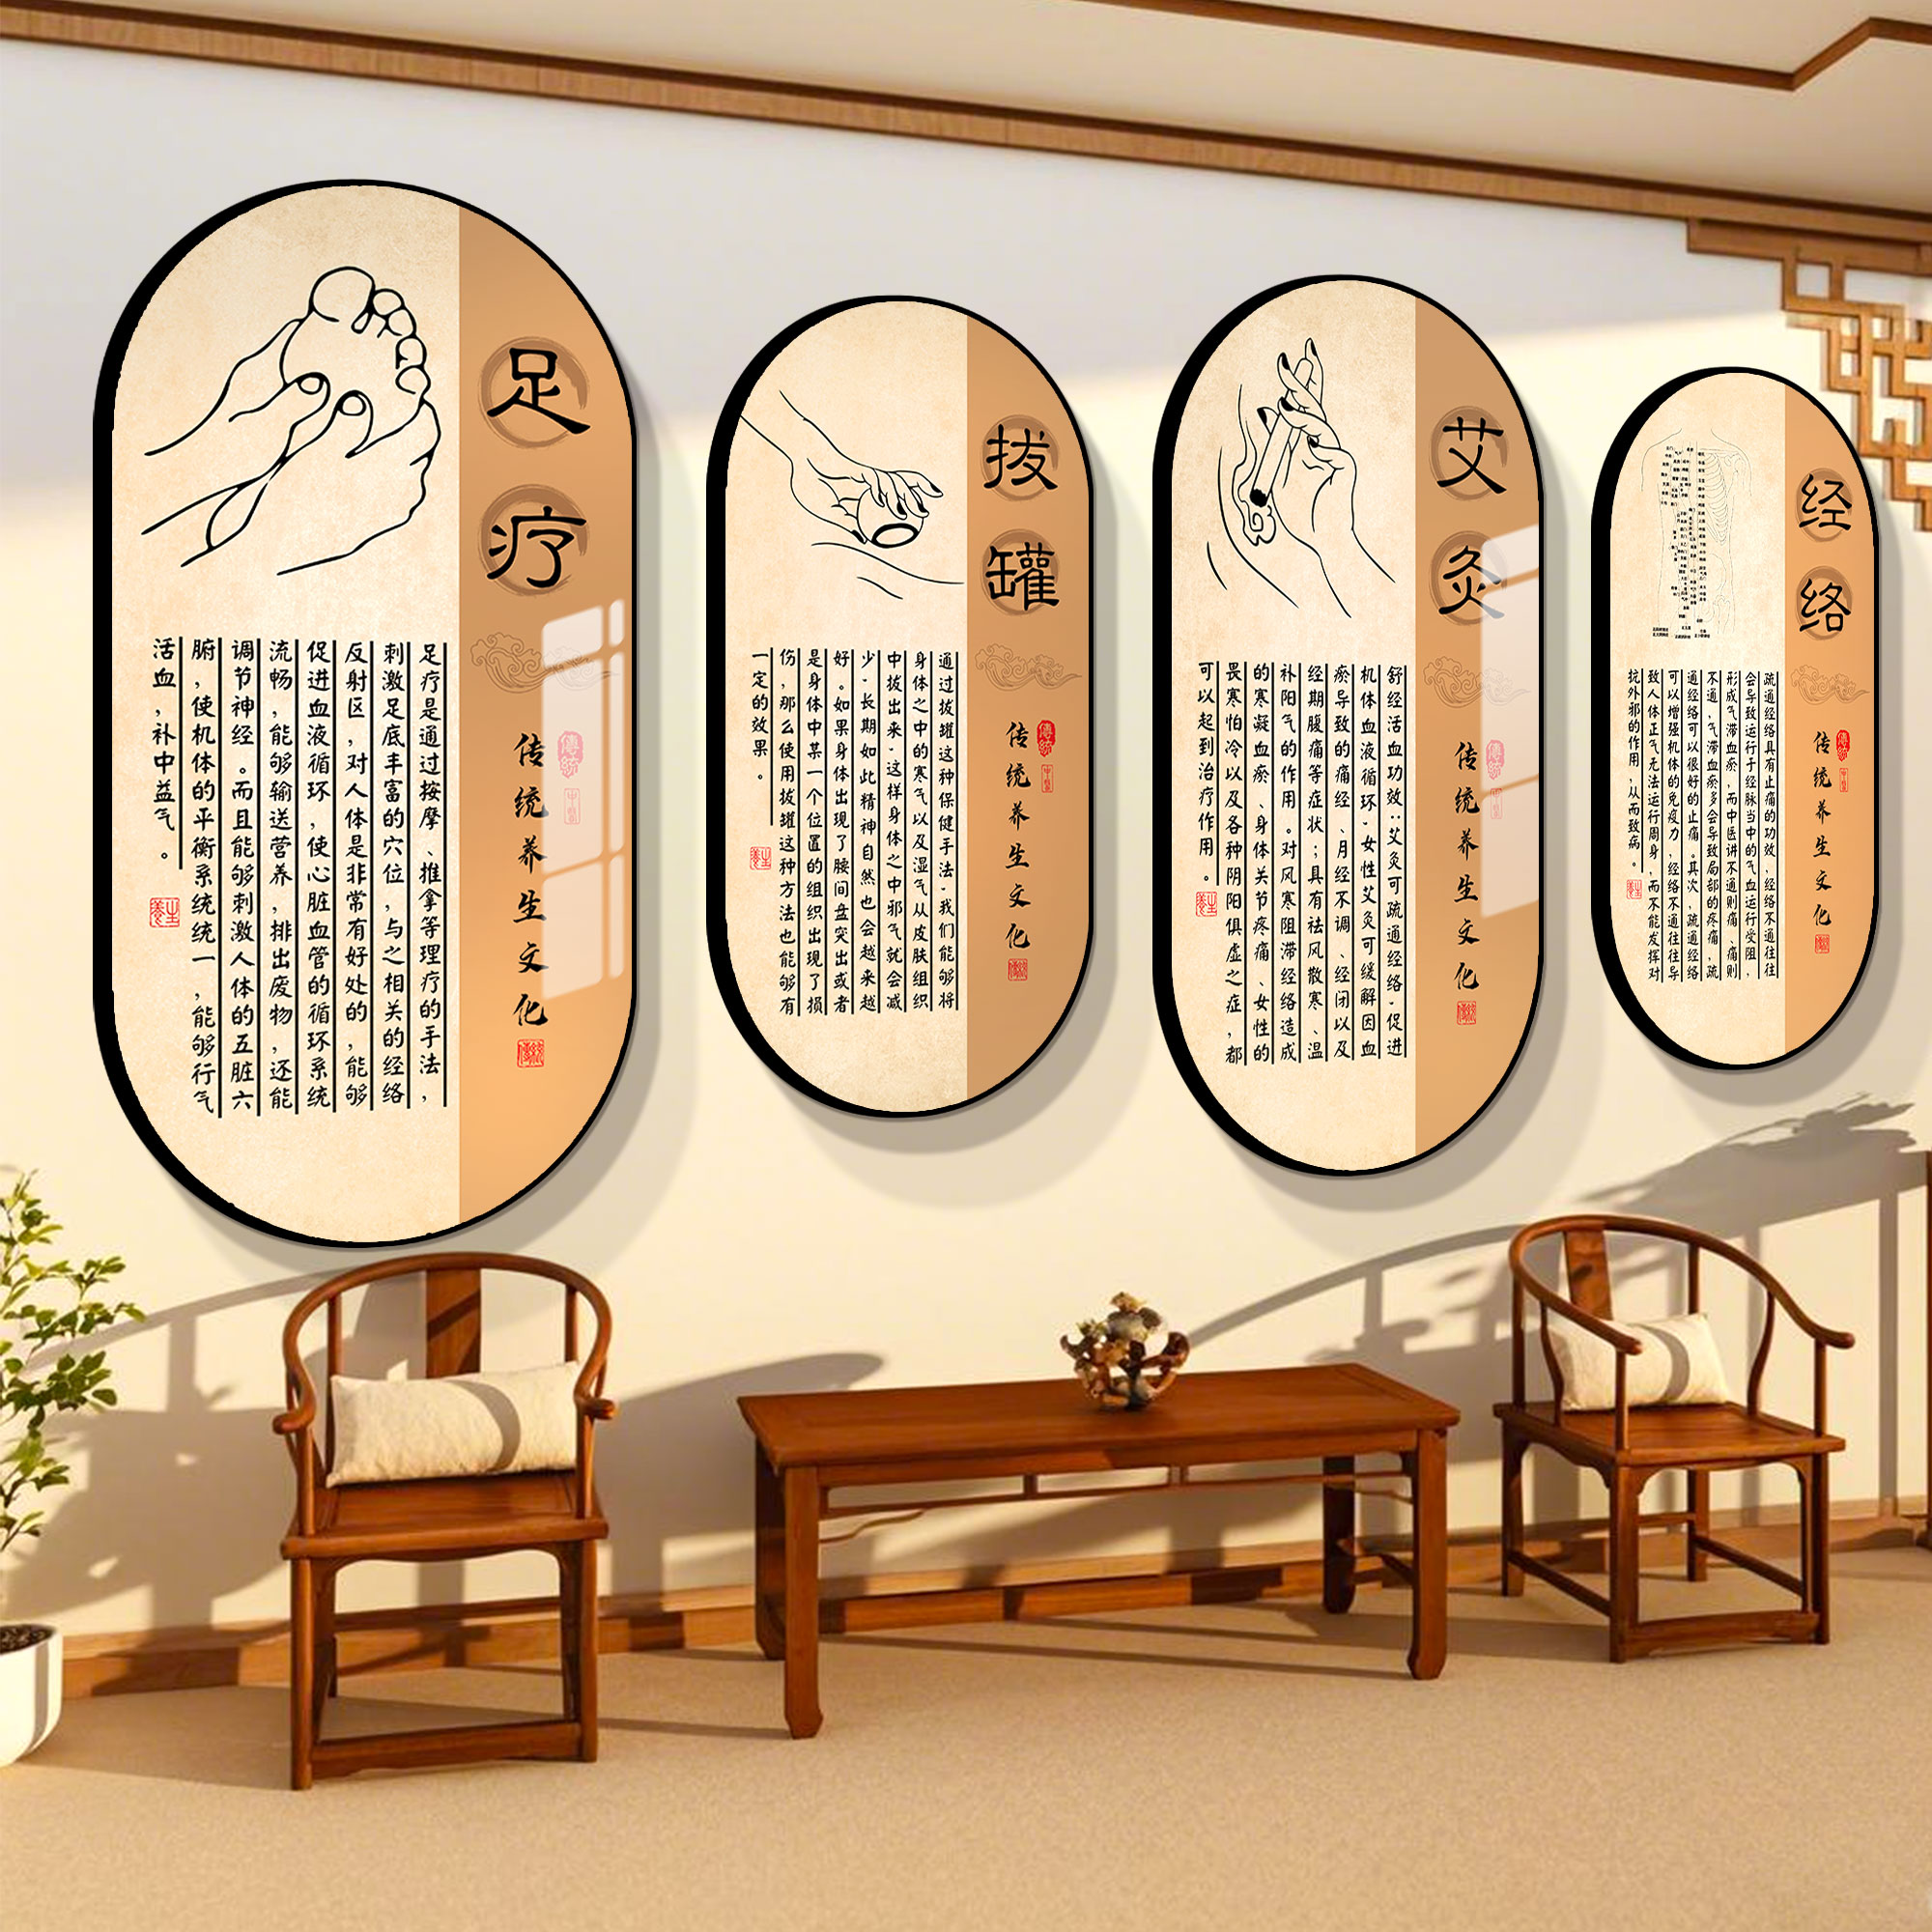 足疗
傳統
中醫
传统养生文化
足疗是通过按摩、推拿等理疗的手法，
刺激足底丰富的穴位，与之相关的经络
反射区，对人体是非常有好处的，能够
促进血液循环，使心脏血管的循环系统
流畅，能够输送营养，排出废物，还能
调节神经。而且能够刺激人体的五脏六
腑，使机体的平衡系统统一，能够行气
活血，补中益气。
養生
拔罐
傳統
中醫
传统养生文化
通过拔罐这种保健手法-我们能够将
身体之中的寒气以及湿气从皮肤组织
中拔出来-这样身体之中邪气就会减
少-长期如此精神自然也会越来越
好。如果身体出现了腰间盘突出或者
是身体中某一个位置的组织出现了损
伤，那么使用拔罐这种方法也能够有
一定的效果。
養生
艾灸
傳統
传统养生文化
舒经活血功效：艾灸可疏通经络-促进
机体血液循环-女性艾灸可缓解因血
瘀导致的痛经、月经不调、经闭以及
经期腹痛等症状；具有祛风散寒、温
补阳气的作用。对风寒阻滞经络造成
的寒凝血瘀、身体关节疼痛、女性的
畏寒怕冷以及各种阴阳俱虚之症，都
可以起到治疗作用。
養生
经络
傳統
中醫
传统养生文化
疏通经络具有止痛的功效，经络不通往往
会导致运行于经脉当中的气血运行受阻，
形成气滞血瘀，而中医讲不通则痛、痛则
不通，气滞血瘀多会导致局部的疼痛，疏
通经络可以很好的止痛。其次，疏通经络
可以增强机体的免疫力，经络不通往往导
致人体正气无法运行周身，而不能发挥对
抗外邪的作用，从而致病。
養生